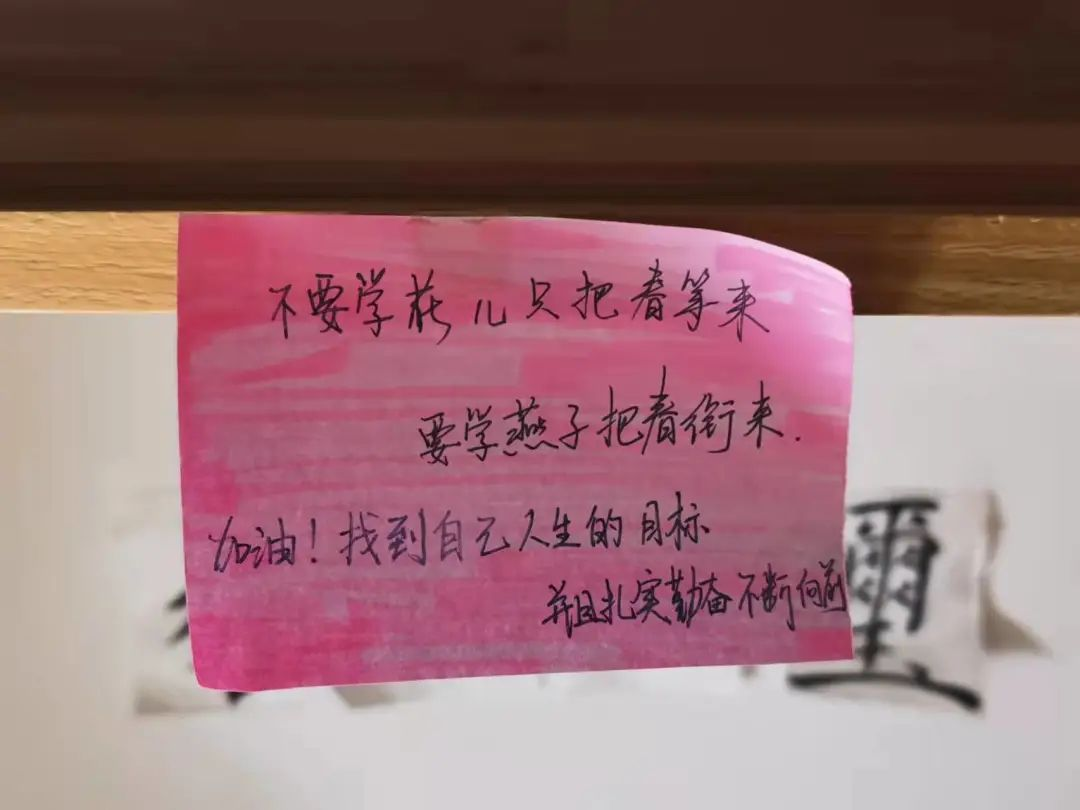 不要学花儿只把春等来
要学燕子把春衔来.
加油！找到自己人生的目标
并且扎实勤奋不断向前